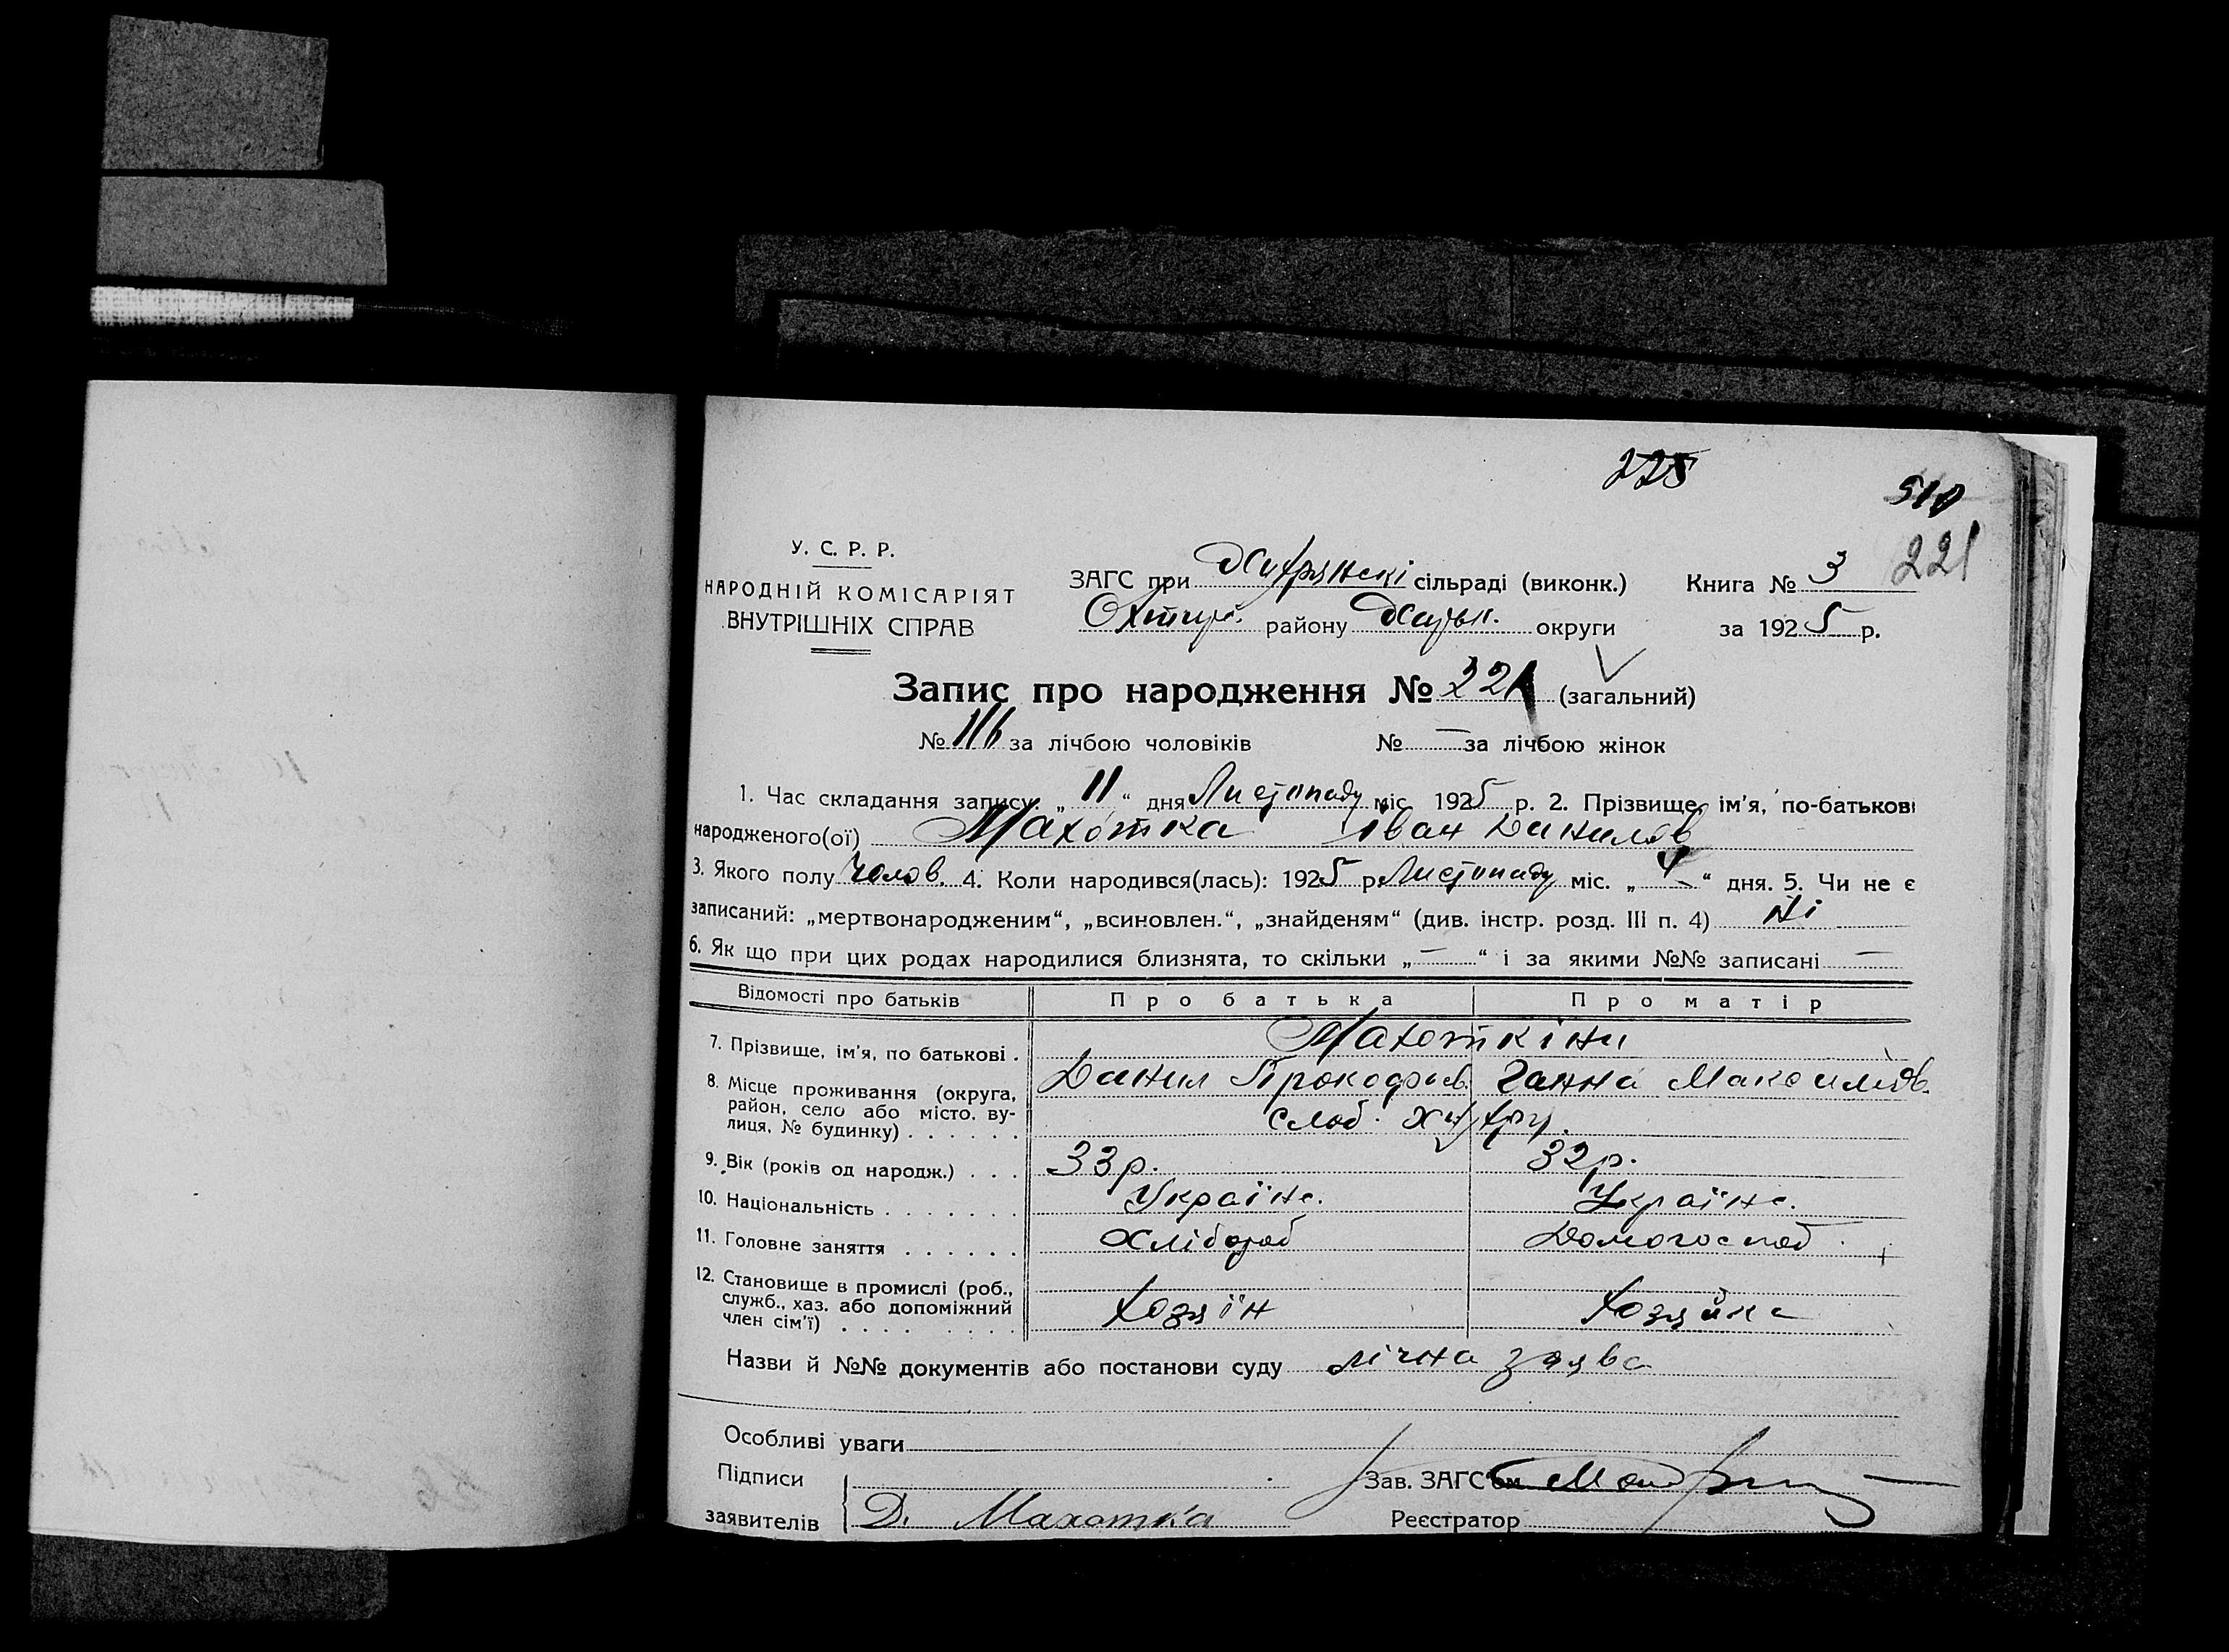 225
510
221
У. С. Р. Р.
НАРОДНІЙ КОМІСАРІЯТ
ВНУТРІШНІХ СПРАВ
ЗАГС при Хухрянскі сільраді (виконк.) Книга № 3
Охтир. району Харьк. округи за 1925 р.
Запис про народження № 221 (загальний)
№ 116 за лічбою чоловіків № — за лічбою жінок
1. Час складання запису. „11“ дня Листопаду міс. 1925 р. 2. Прізвище, ім'я, по-батькові
народженого(ої) Махотка Іван Данилов
3. Якого полу Чолов. 4. Коли народився(лась): 1925 р. Листопаду міс. „4“ дня. 5. Чи не є
записаний: „мертвонародженим“, „всиновлен.“, „знайденям“ (див. інстр. розд. III п. 4) Ні
6. Як що при цих родах народилися близнята, то скільки „—“ і за якими №№ записані —
Відомості про батьків Про батька Про матір
7. Прізвище, ім'я, по батькові . Махоткіни
Данил Прокофьев. Ганна Максимов.
8. Місце проживання (округа,
район, село або місто, ву-
лиця, № будинку) . . . . . . слоб. Хухри.
9. Вік (років од народж.) . . . 33 р. 32 р.
10. Національність . . . . . . . Українс. Українс.
11. Головне заняття . . . . . . Хлібороб Домогоспод.
12. Становище в промислі (роб.,
служб., хаз. або допоміжний
член сім'ї) . . . . . . . . Хозяїн Хозяйка
Назви й №№ документів або постанови суду лічна заява
Особливі уваги
Підписи Зав. ЗАГС'ом
заявителів Д. Махотка Реєстратор